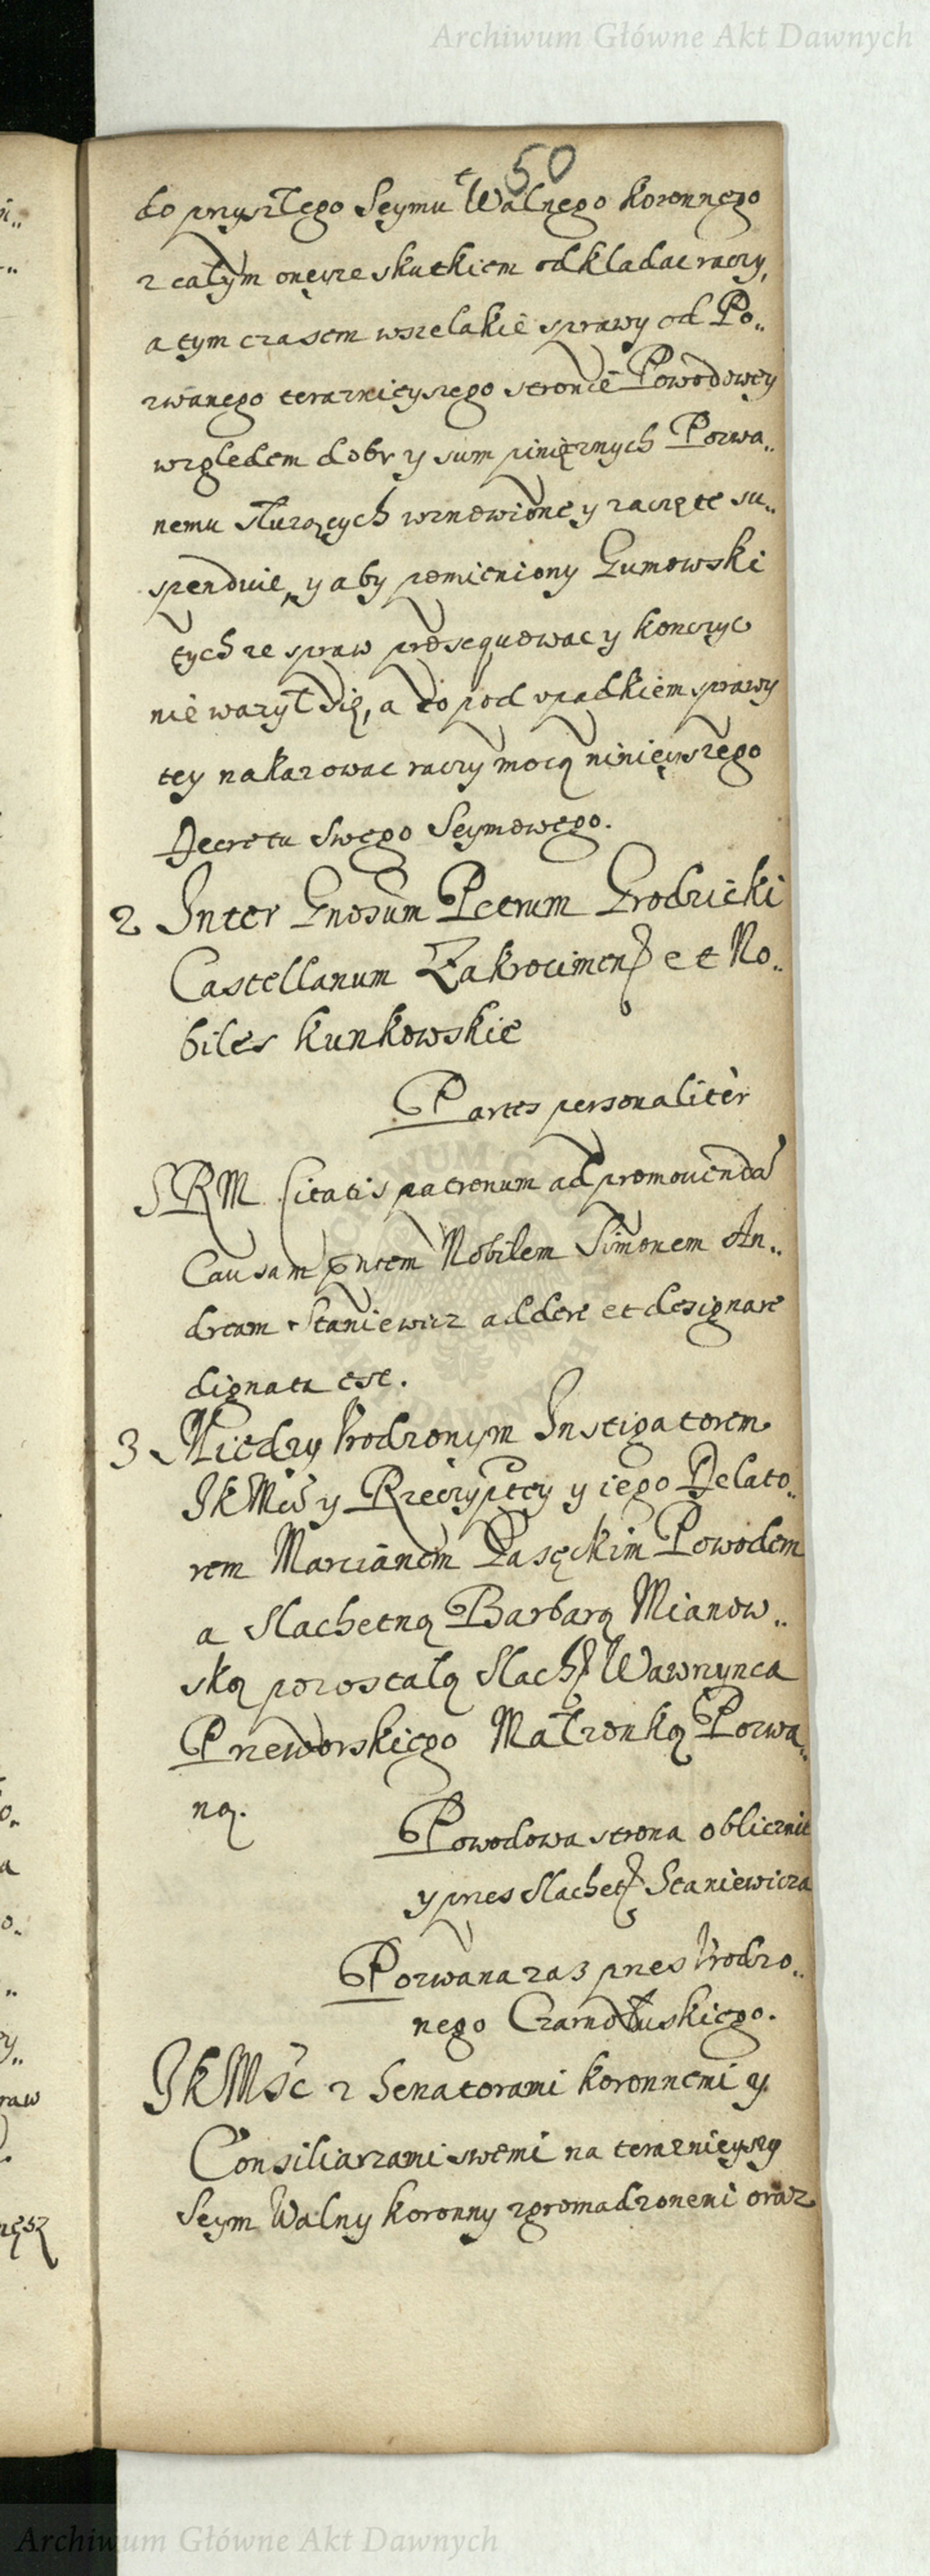 Archiwum Główne Akt Dawnych
50
do przyszłego Seymu Walnego koronnego
z całym onęsze skutkiem odkladac raczy,
a tym czasem wszelakie sprawy od Po„
zwanego teraznieyszego stronie Powodowey
względem dobr y sum pinięznych Pozwa„
nemu służących wznowione y zaczęte su„
spenduie, y aby pomieniony Gumowski
tychze spraw prosequowac y konczyc
nie wazył się, a to pod upadkiem sprawy
tey nakazowac raczy mocą ninieyszego
Decretu Swego Seymowego.
2 Inter Gnosum Petrum Grodzicki
Castellanum Zakrocimen et No„
biles Kunkowskie
Partes personaliter
SRM Citatis patronum ad promovenda
Causam pntem Nobilem Simonem An„
dream Staniewicz addere et designare
dignata est.
3 Między Vrodzonym Instigatorem
JkMci y Rzeczyptey y iego Delato„
rem Marcianem Pasęckim Powodem
a Slachetną Barbarą Mianow„
ską pozostalą Slach Wawrzynca
Przeworskiego Małzonką Pozwa„
ną.
Powodowa strona oblicznie
y przes Slachet Staniewicza
Pozwana zas przes Vrodzo„
nego Czarnołuskiego.
JkMsc z Senatorami koronnemi y
Consiliarzami swemi na teraznieyszy
Seym Walny koronny zgromadzonemi oraz
Archiwum Główne Akt Dawnych